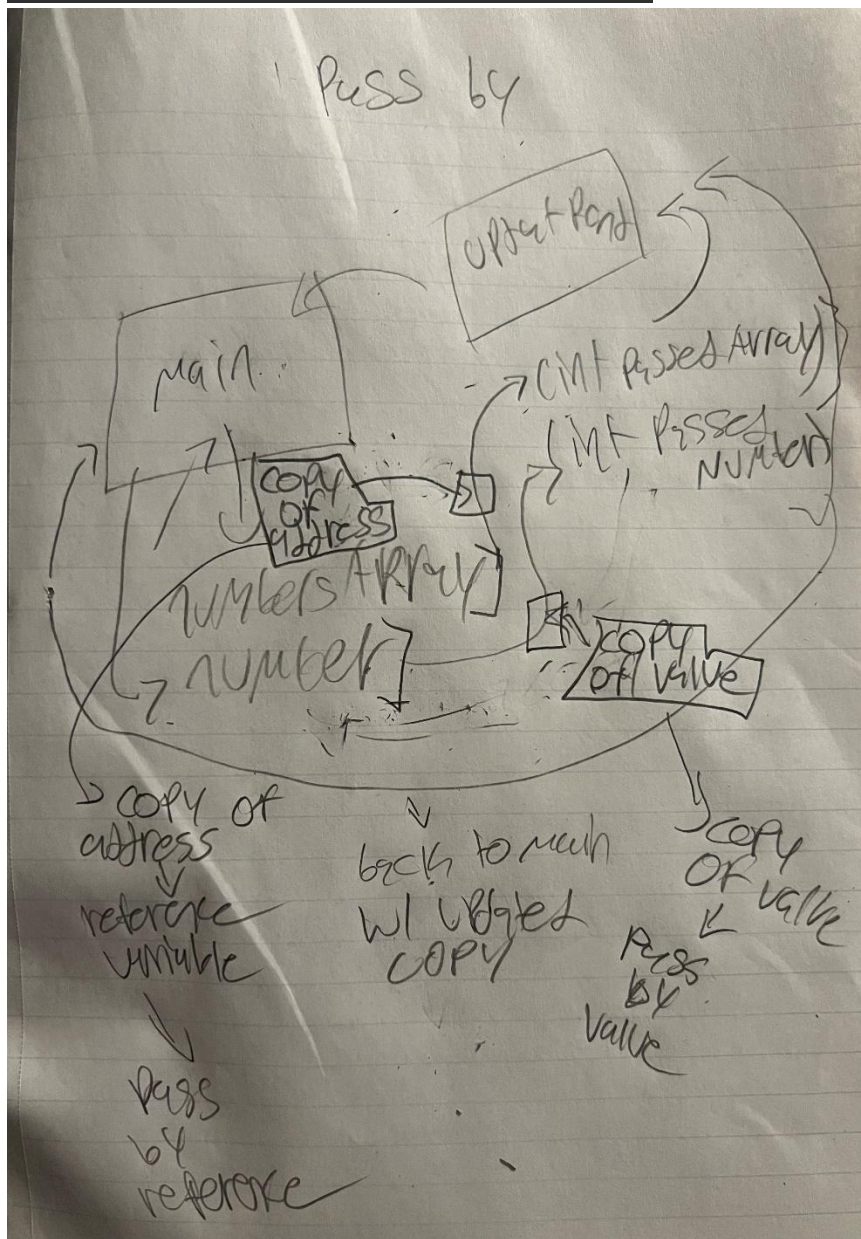 Pass by
main
(int passed Array)
(int passed
Number)
copy
of
address
numbers Array
number
copy
of value
copy of
address
reference
variable
pass
by
reference
back to main
w/ updated
copy
copy
of value
pass
by
value